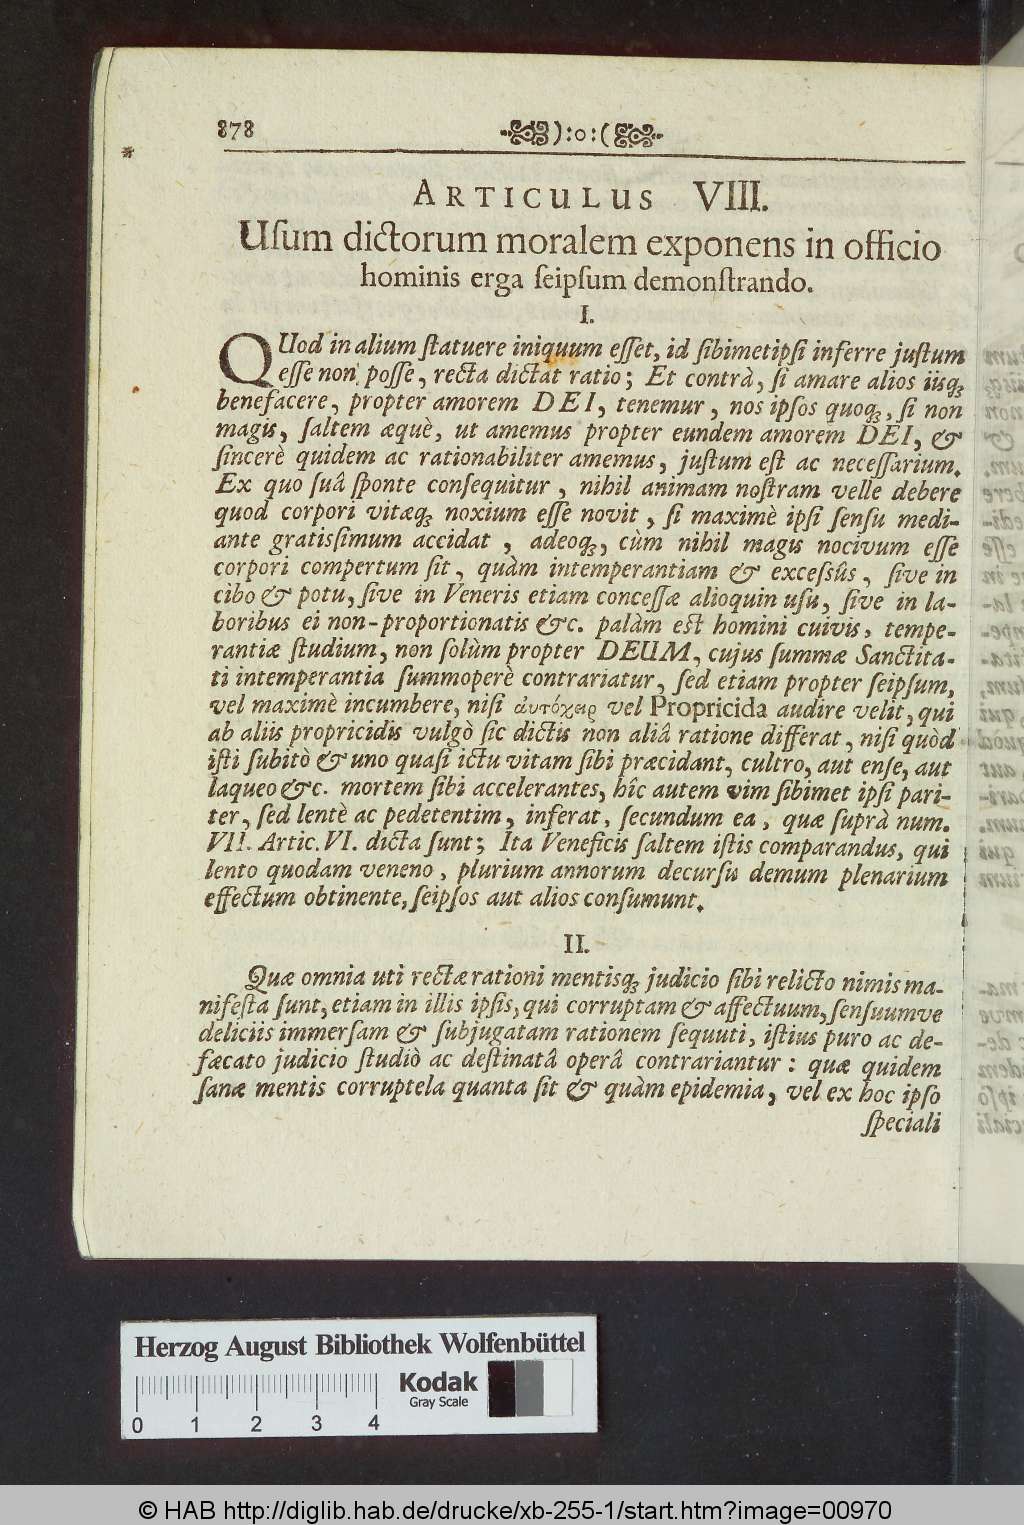 878 ):o:(
*
ARTICULUS VIII.
Uſum dictorum moralem exponens in officio
hominis erga ſeipſum demonſtrando.
I.
QUod in alium ſtatuere iniquum eſſet, id ſibimetipſi inferre juſtum
eſſe non poſſe, recta dictat ratio; Et contrà, ſi amare alios iisq́;
benefacere, propter amorem DEI, tenemur, nos ipſos quoq́;, ſi non
magis, ſaltem æquè, ut amemus propter eundem amorem DEI, &
ſincerè quidem ac rationabiliter amemus, juſtum eſt ac neceſſarium.
Ex quo ſuâ ſponte conſequitur, nihil animam noſtram velle debere
quod corpori vitæq́; noxium eſſe novit, ſi maximè ipſi ſenſu medi-
ante gratisſimum accidat, adeoq́;, cùm nihil magis nocivum eſſe
corpori compertum ſit, quàm intemperantiam & excesſûs, ſive in
cibo & potu, ſive in Veneris etiam conceſſæ alioquin uſu, ſive in la-
boribus ei non-proportionatis &c. palàm eſt homini cuivis, tempe-
rantiæ ſtudium, non ſolùm propter DEUM, cujus ſummæ Sanctita-
ti intemperantia ſummoperè contrariatur, ſed etiam propter ſeipſum,
vel maximè incumbere, niſi ἀυτόχειρ vel Propricida audire velit, qui
ab aliis propricidis vulgò ſic dictis non aliâ ratione differat, niſi quòd
iſti ſubitò & uno quaſi ictu vitam ſibi præcidant, cultro, aut enſe, aut
laqueo &c. mortem ſibi accelerantes, hîc autem vim ſibimet ipſi pari-
ter, ſed lentè ac pedetentim, inferat, ſecundum ea, quæ ſuprà num.
VII. Artic. VI. dicta ſunt; Ita Veneficis ſaltem iſtis comparandus, qui
lento quodam veneno, plurium annorum decurſu demum plenarium
effectum obtinente, ſeipſos aut alios conſumunt.
II.
Quæ omnia uti rectæ rationi mentisq́; judicio ſibi relicto nimis ma-
nifeſta ſunt, etiam in illis ipſis, qui corruptam & affectuum, ſenſuumve
deliciis immerſam & ſubjugatam rationem ſequuti, iſtius puro ac de-
fæcato judicio ſtudiò ac deſtinatâ operâ contrariantur: quæ quidem
ſanæ mentis corruptela quanta ſit & quàm epidemia, vel ex hoc ipſo
ſpeciali
Herzog August Bibliothek Wolfenbüttel
Kodak
Gray Scale
0 1 2 3 4
© HAB http://diglib.hab.de/drucke/xb-255-1/start.htm?image=00970